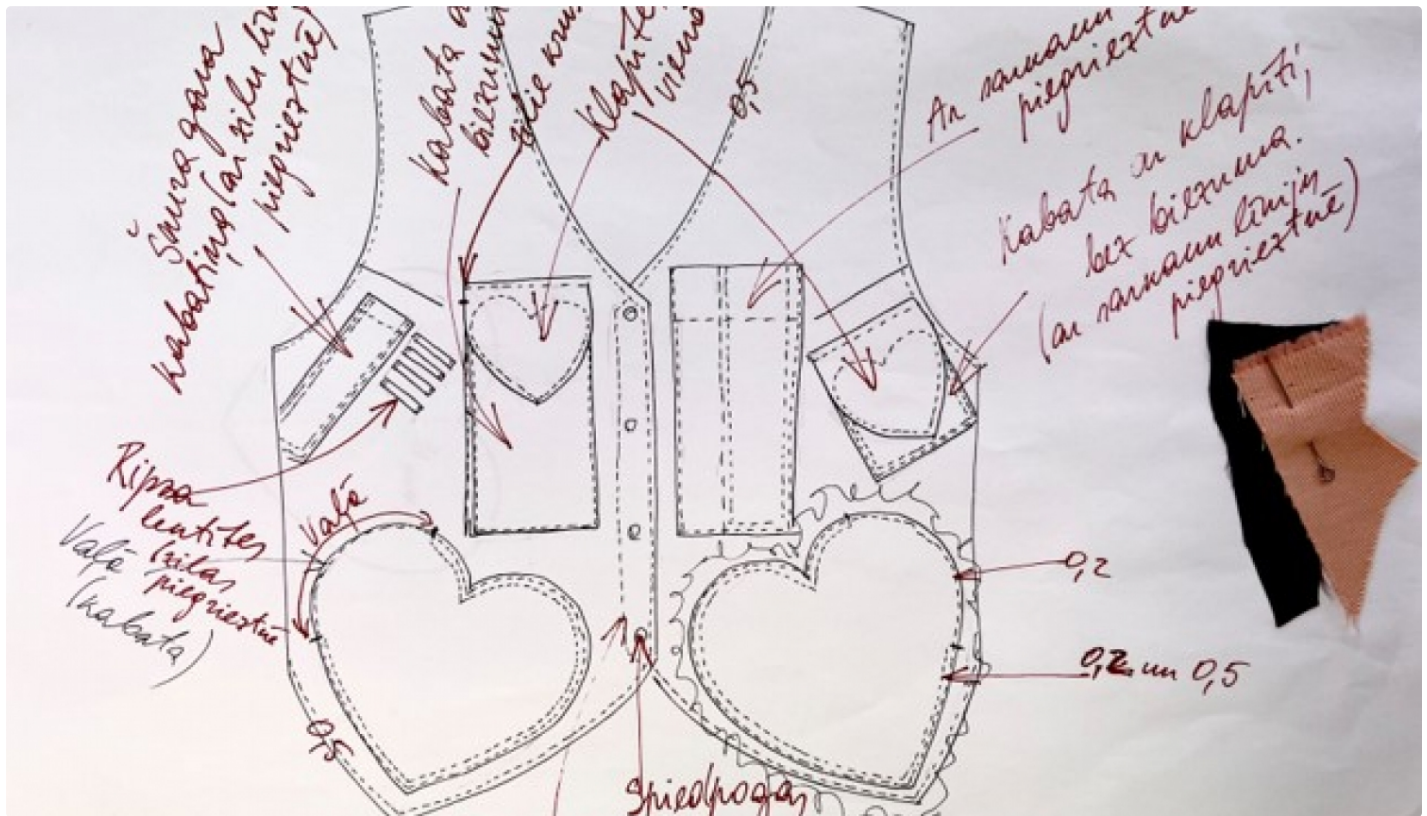 Šaura gara
kabatiņa (ar zilu līn
piegrieztnē)
Kabata a
biezum
zilie kru
Klapīte
vieno
0,5
Ar sarkanu
piegrieztnē
Kabata ar klapīti,
bez biezuma.
(ar sarkanu līniju
piegrieztnē)
Ripsa
lentītes
(zilas
piegrieztnē
Vaļā
Vaļā
(kabata)
0,5
0,2
0,2 un 0,5
Spiedpogas